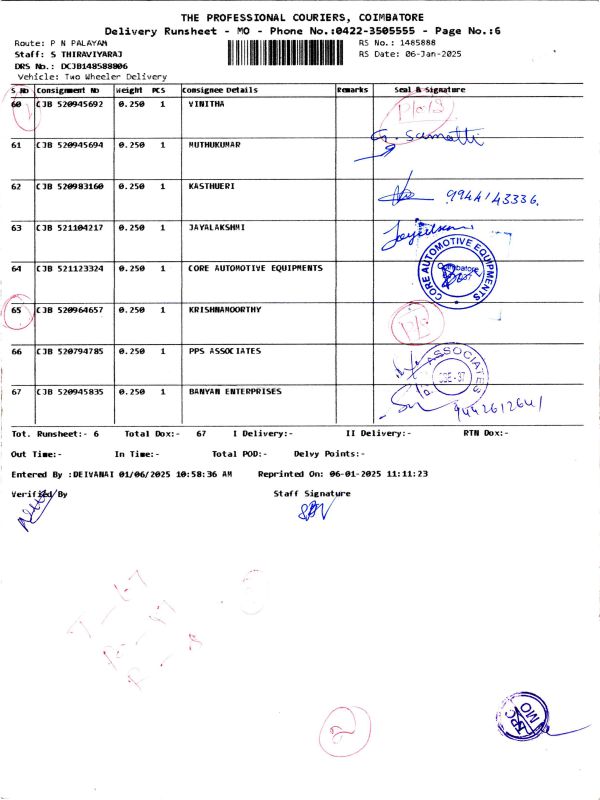 THE PROFESSIONAL COURIERS, COIMBATORE
Delivery Runsheet - MO - Phone No.:0422-3505555 - Page No.:6
Route: P N PALAYAM RS No.: 1485888
Staff: S THIRAVIYARAJ RS Date: 06-Jan-2025
DRS No.: DCJB148588806
Vehicle: Two Wheeler Delivery
S No Consignment No Weight PCS Consignee Details Remarks Seal & Signature
60 CJB 520945692 0.250 1 VINITHA
61 CJB 520945694 0.250 1 MUTHUKUMAR
62 CJB 520983160 0.250 1 KASTHUERI 9944143336.
63 CJB 521104217 0.250 1 JAYALAKSHMI
64 CJB 521123324 0.250 1 CORE AUTOMOTIVE EQUIPMENTS CORE AUTOMOTIVE EQUIPMENTS Coimbatore
65 CJB 520964657 0.250 1 KRISHNAMOORTHY
66 CJB 520794785 0.250 1 PPS ASSOCIATES ASSOCIATES
67 CJB 520945835 0.250 1 BANYAN ENTERPRISES 9442612641
Tot. Runsheet:- 6 Total Dox:- 67 I Delivery:- II Delivery:- RTN Dox:-
Out Time:- In Time:- Total POD:- Delvy Points:-
Entered By :DEIVANAI 01/06/2025 10:58:36 AM Reprinted On: 06-01-2025 11:11:23
Verified By Staff Signature
T - 67
2
MO